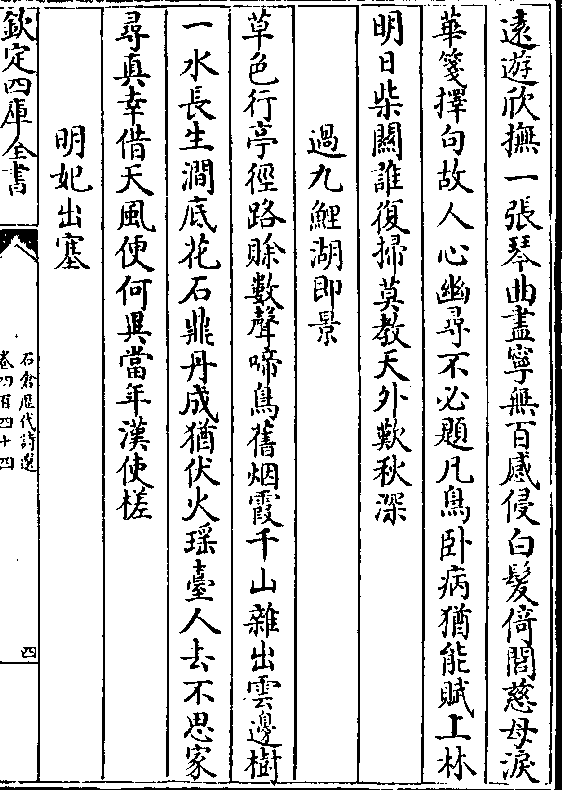 遠遊欣撫一張琴曲盡寧無百感侵白髮倚閭慈母淚
華箋擇句故人心幽尋不必題凡鳥卧病猶能賦上林
明日柴關誰復掃莫教天外歎秋深
過九鯉湖即景
草色行亭徑路賖數聲啼鳥舊烟霞千山雜出雲邊樹
一水長生澗底花石鼎丹成猶伏火瑶臺人去不思家
尋真幸借天風便何異當年漢使槎
明妃出塞
欽定四庫全書
石倉歷代詩選
卷四百四十四
四